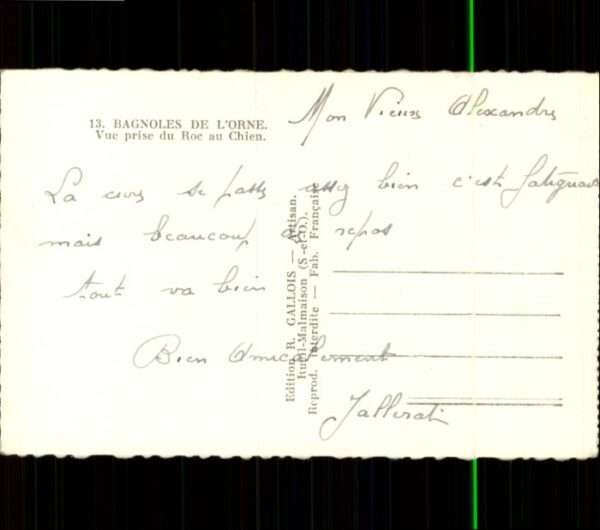 Mon Vieux Alexandre
13. BAGNOLES DE L'ORNE.
Vue prise du Roc au Chien.
La cure se passe assez bien c'est fatiguant
mais beaucoup de repos
tout va bien
Bien Amicalement
Edition R. GALLOIS — Artisan.
Rueil-Malmaison (S.-et-O.).
Reprod. Interdite — Fab. Française